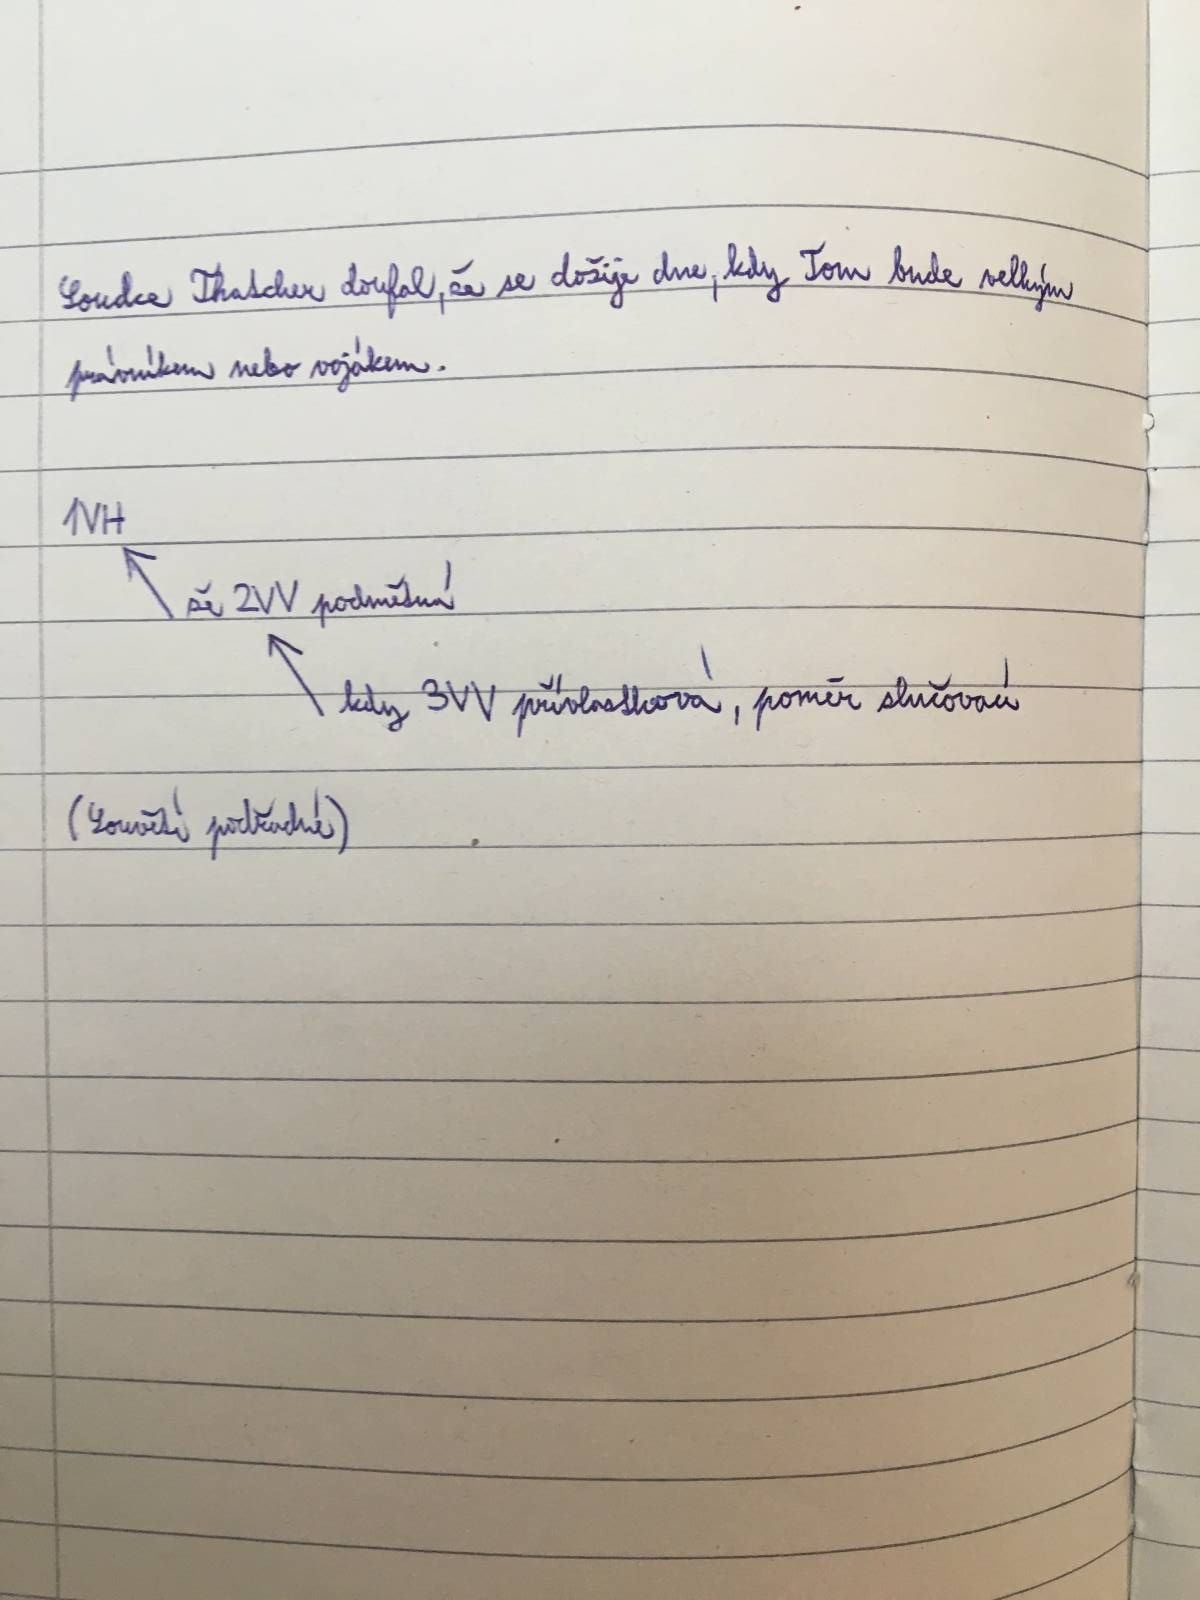 Soudce Thatcher doufal, že se dožije dne, kdy Tom bude velkým
právníkem nebo vojákem.
1VH
že 2VV podmětná
kdy 3VV přívlastková, poměr slučovací
(Souvětí podřadné)